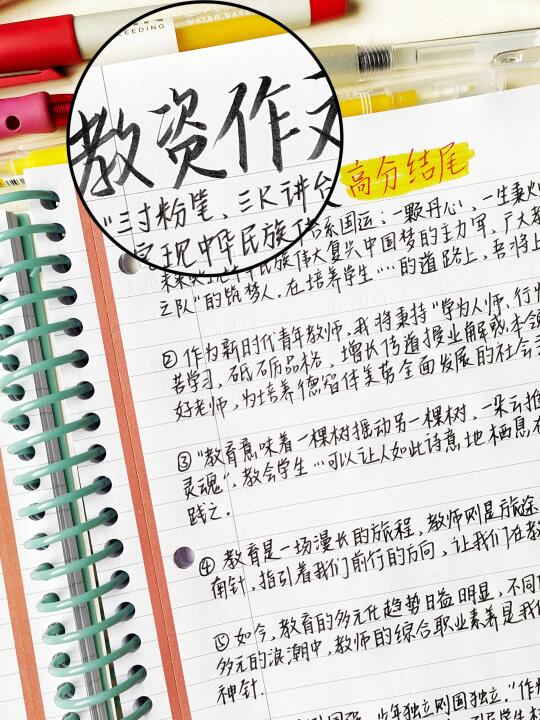 EEDING
WATER BASE
教资作文
高分结尾
"三寸粉笔、三尺讲台
系国运;一颗丹心、一生秉
实现中华民族伟大复兴中国梦的主力军,广大
之队"的筑梦人.在培养学生……的道路上,吾将上
② 作为新时代青年教师,我将秉持"学为人师,行
苦学习,砥砺品格,增长传道授业解惑本领
好老师,为培养德智体美劳全面发展的社会
③ "教育意味着一棵树摇动另一棵树,一朵云推
灵魂",教会学生…可以让人如此诗意地栖息在
践之.
④ 教育是一场漫长的旅程,教师则是旅途
南针,指引着我们前行的方向,让我们在教
⑤ 如今,教育的多元化趋势日益明显,不同
多元的浪潮中,教师的综合职业素养是我们
神针.
少年独立则国独立."作为